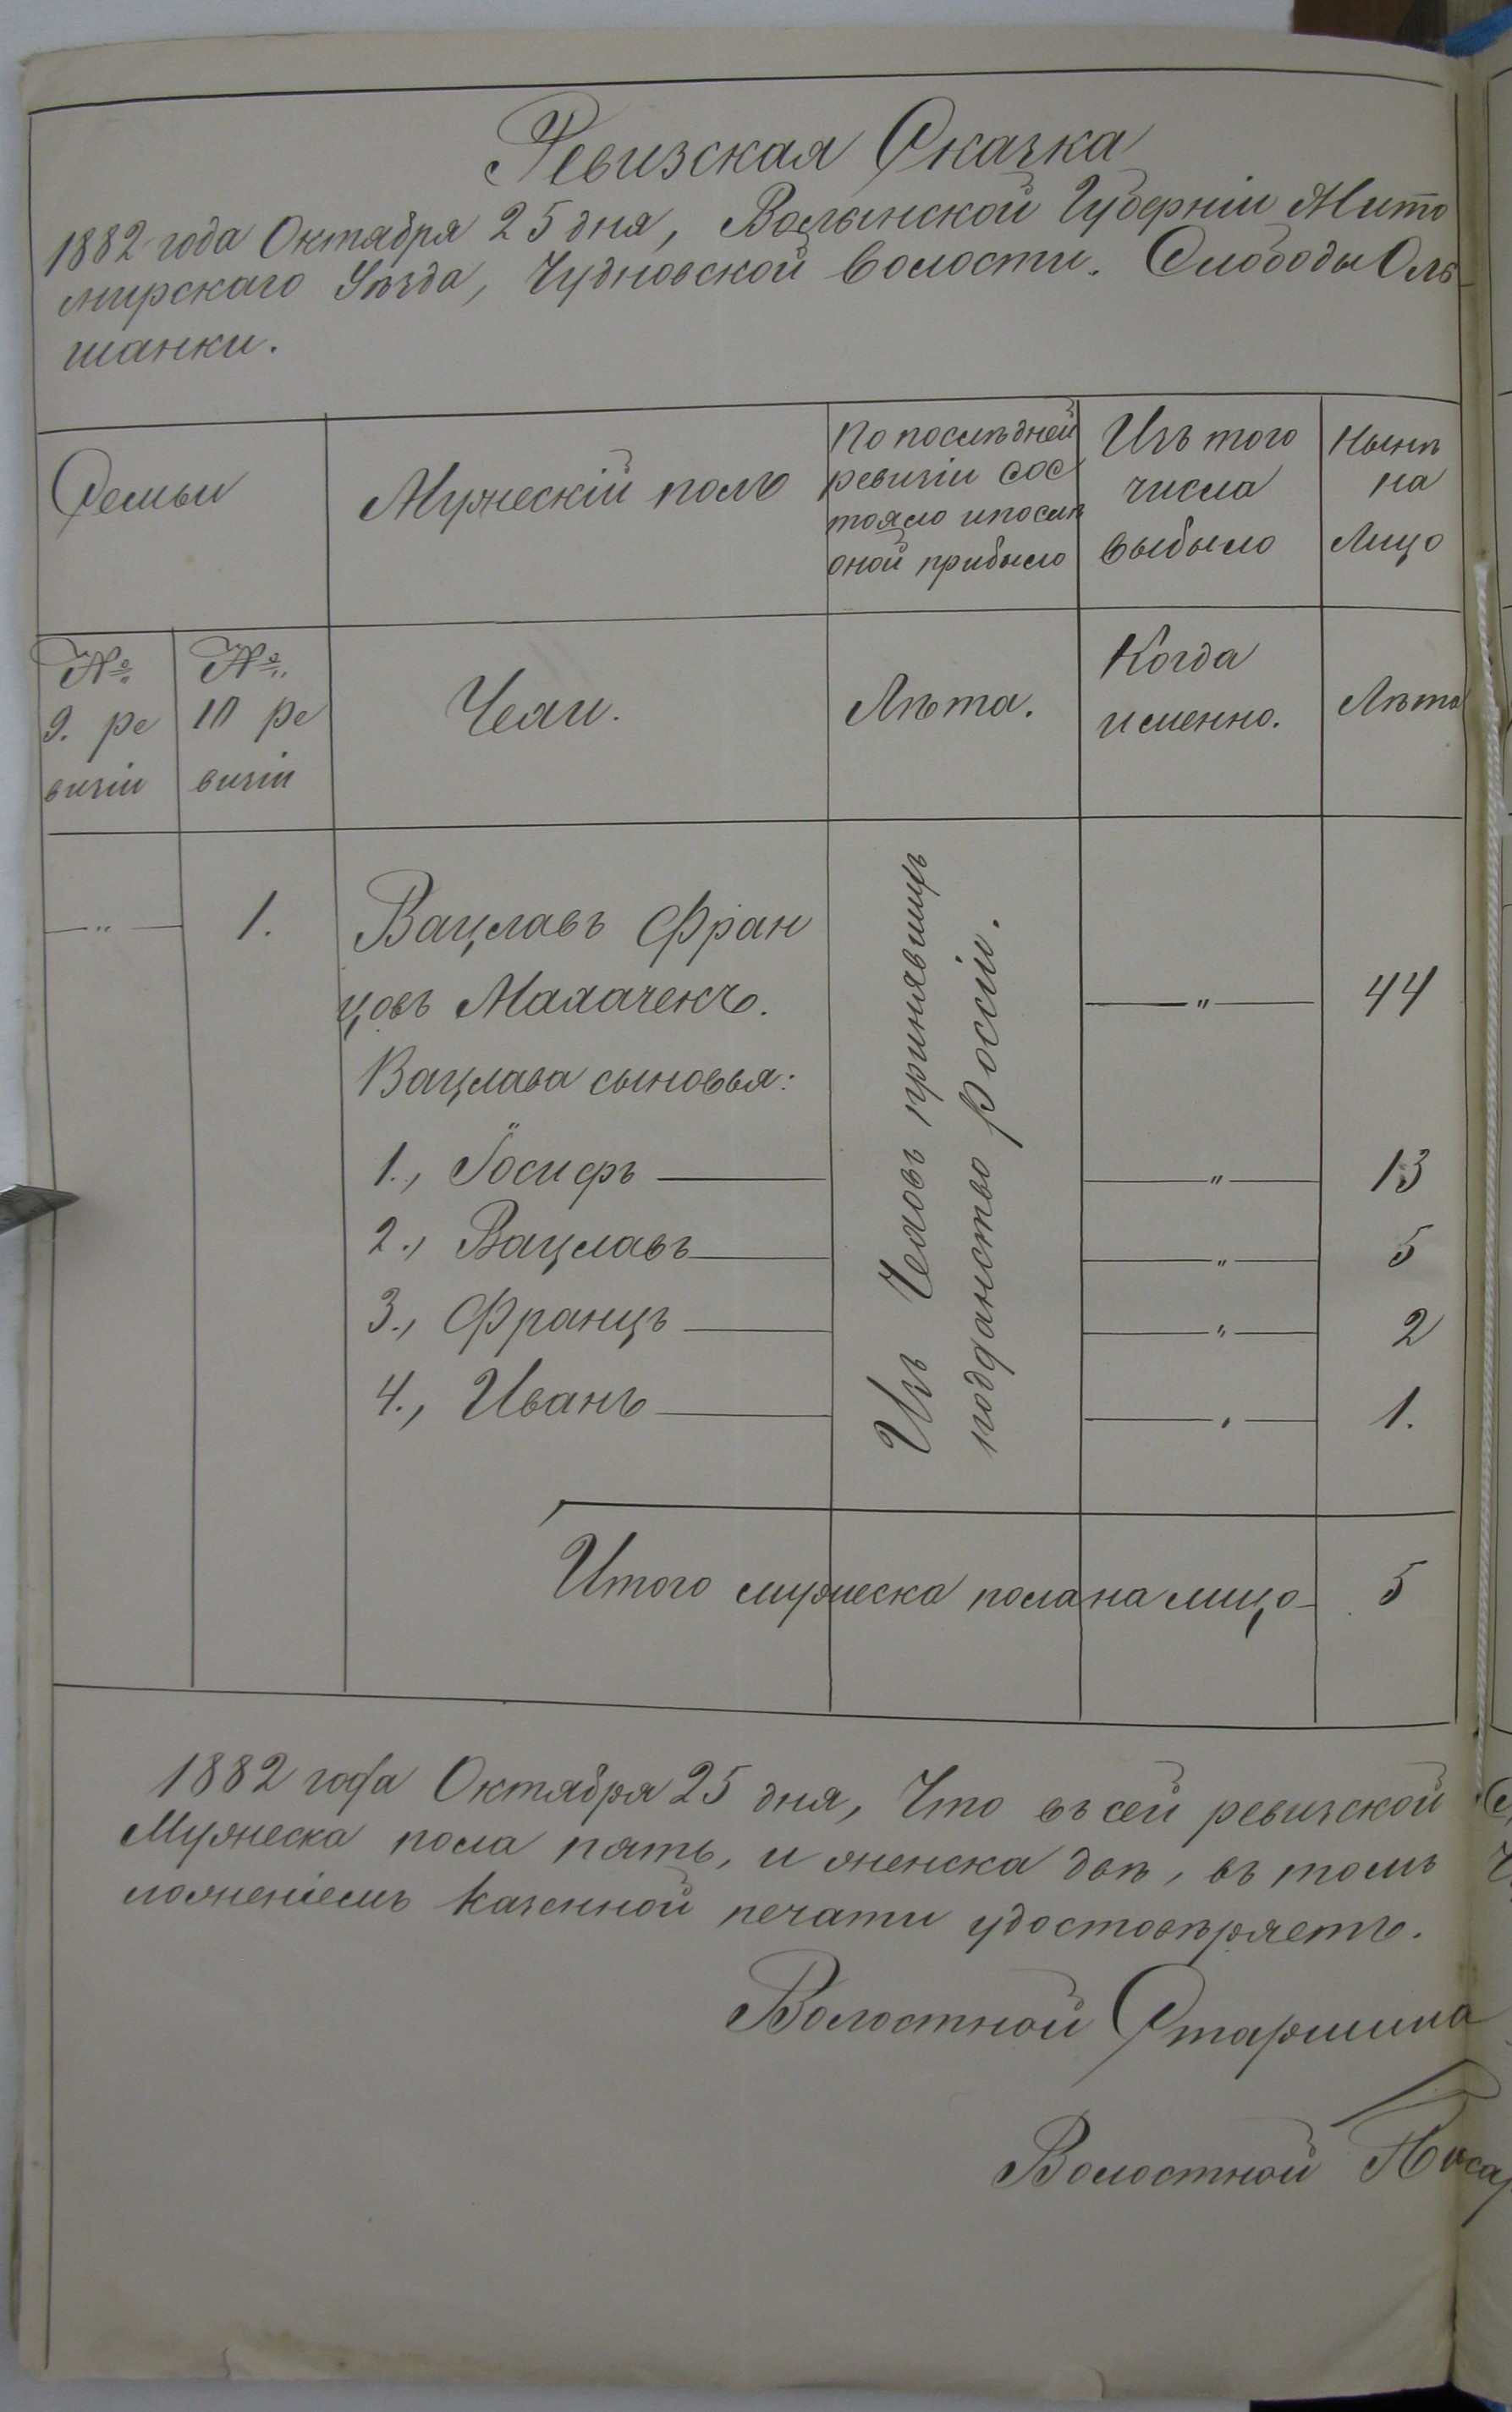 Ревизская Сказка
1882 года Октября 25 дня, Волынской Губерніи Жито
мирскаго Уѣзда, Чудновской волости. Слободы Оль-
шанки.
Семьи
Мужескій полъ
По послѣдней
ревизіи сос
тояло и послѣ
оной прибыло
Изъ того
числа
выбыло
Нынѣ
на
Лицо
№
9. ре
визіи
№
10 ре
визіи
Чехи.
Лѣта.
Когда
именно.
Лѣта
— " — 1. Вацлавъ Фран
цовъ Малаченъ. — " — 44
Вацлава сыновья:
1., Іосифъ — — " — 13
2., Вацлавъ — — " — 5
3., Францъ — — " — 2
4., Иванъ — — " — 1.
Изъ Чеховъ принявшихъ
подданство россіи.
Итого мужеска пола на лицо – 5
1882 года Октября 25 дня, Что въ сей ревизской
Мужеска пола пять, и женска двѣ, въ томъ
ложеніемъ казенной печати удостовѣряетъ.
Волостной Старшина
Волостной Писар